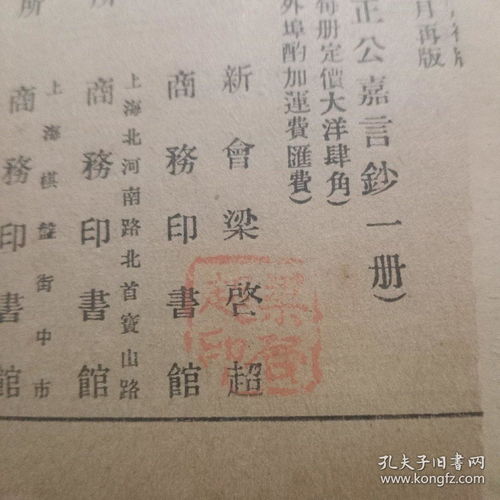 月再版
正公嘉言鈔一册)
每册定價大洋肆角)
外埠酌加運費匯費)
新會梁啓超
商務印書館
上海北河南路北首寶山路
商務印書館
所
上海棋盤街中市
商務印書館
所
梁啓超印
孔夫子旧书网
www.kongfz.com